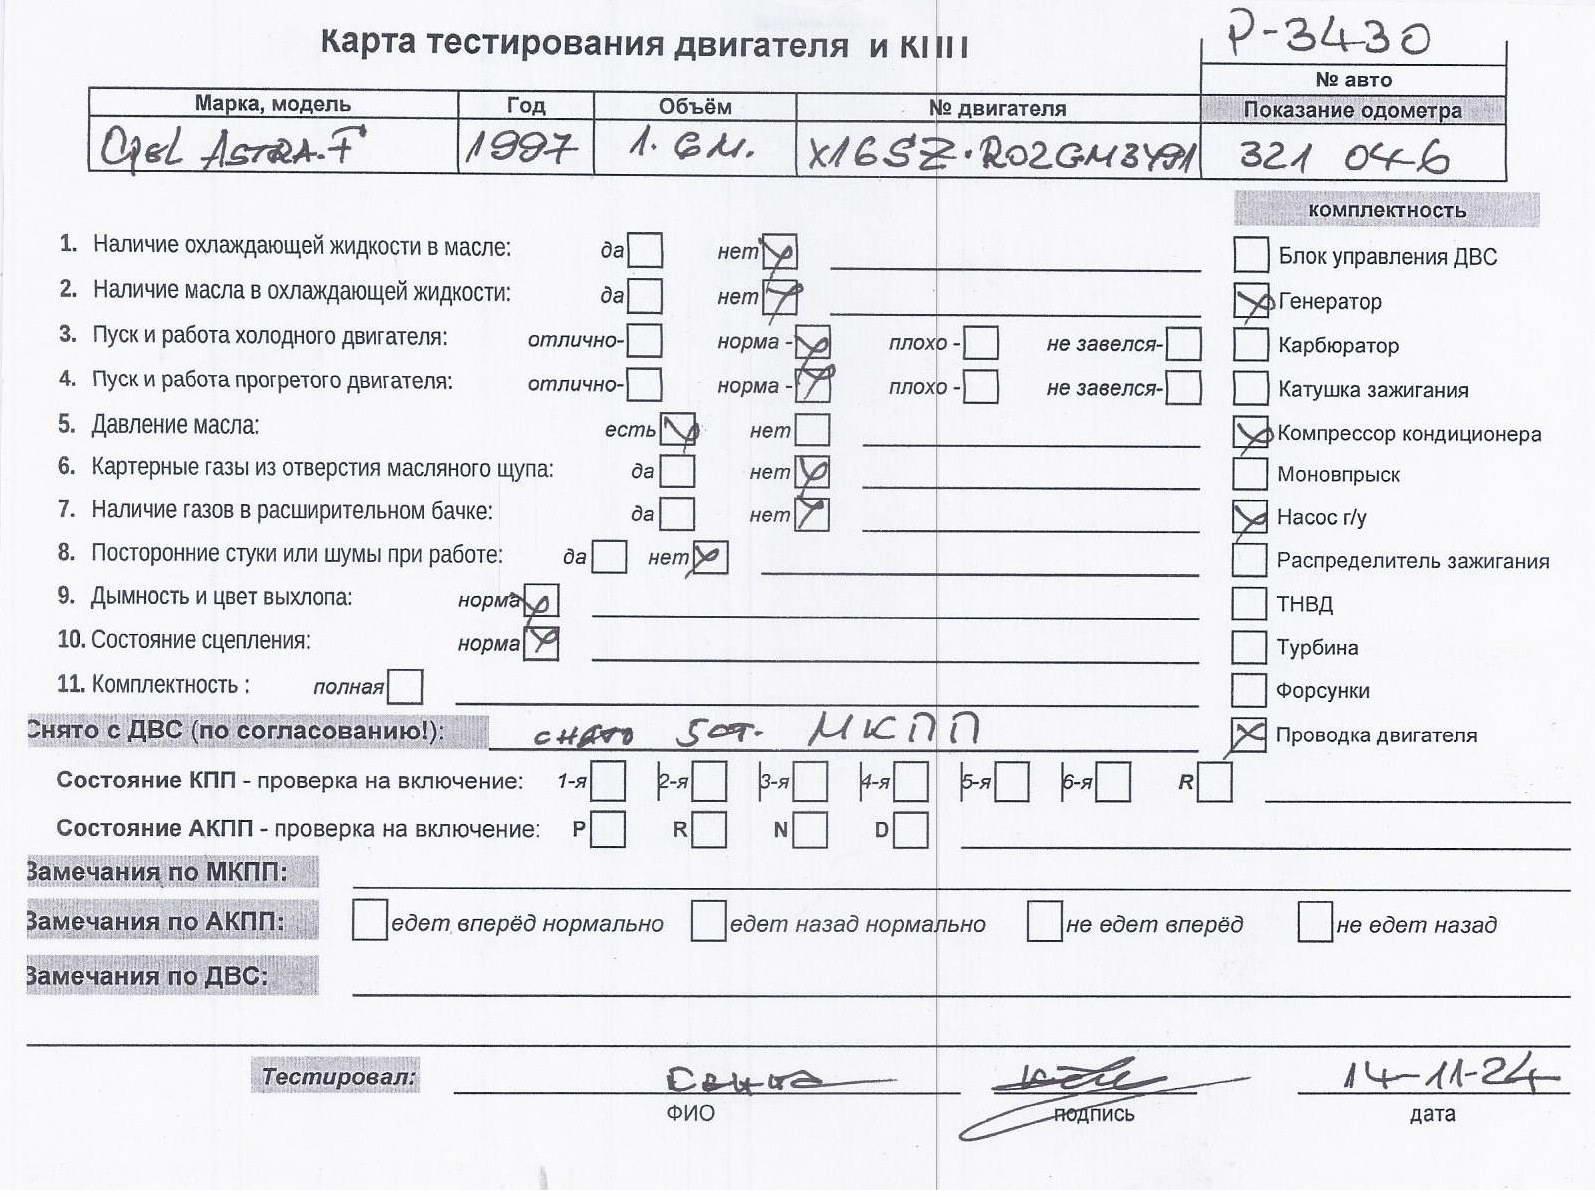 Карта тестирования двигателя и КПП
P-3430
№ авто
Марка, модель Год Объём № двигателя Показание одометра
Opel ASTRA.F 1997 1.6 М. X16SZ.R02GM3491 321 046
комплектность
1. Наличие охлаждающей жидкости в масле: да нет
Блок управления ДВС
2. Наличие масла в охлаждающей жидкости: да нет
Генератор
3. Пуск и работа холодного двигателя: отлично- норма - плохо - не завелся-
Карбюратор
4. Пуск и работа прогретого двигателя: отлично- норма - плохо - не завелся-
Катушка зажигания
5. Давление масла: есть нет
Компрессор кондиционера
6. Картерные газы из отверстия масляного щупа: да нет
Моновпрыск
7. Наличие газов в расширительном бачке: да нет
Насос г/у
8. Посторонние стуки или шумы при работе: да нет
Распределитель зажигания
9. Дымность и цвет выхлопа: норма
ТНВД
10. Состояние сцепления: норма
Турбина
11. Комплектность : полная
Форсунки
Снято с ДВС (по согласованию!): снято 5ст. МКПП
Проводка двигателя
Состояние КПП - проверка на включение: 1-я 2-я 3-я 4-я 5-я 6-я R
Состояние АКПП - проверка на включение: P R N D
Замечания по МКПП:
Замечания по АКПП: едет вперёд нормально едет назад нормально не едет вперёд не едет назад
Замечания по ДВС:
Тестировал: 14-11-24
ФИО подпись дата